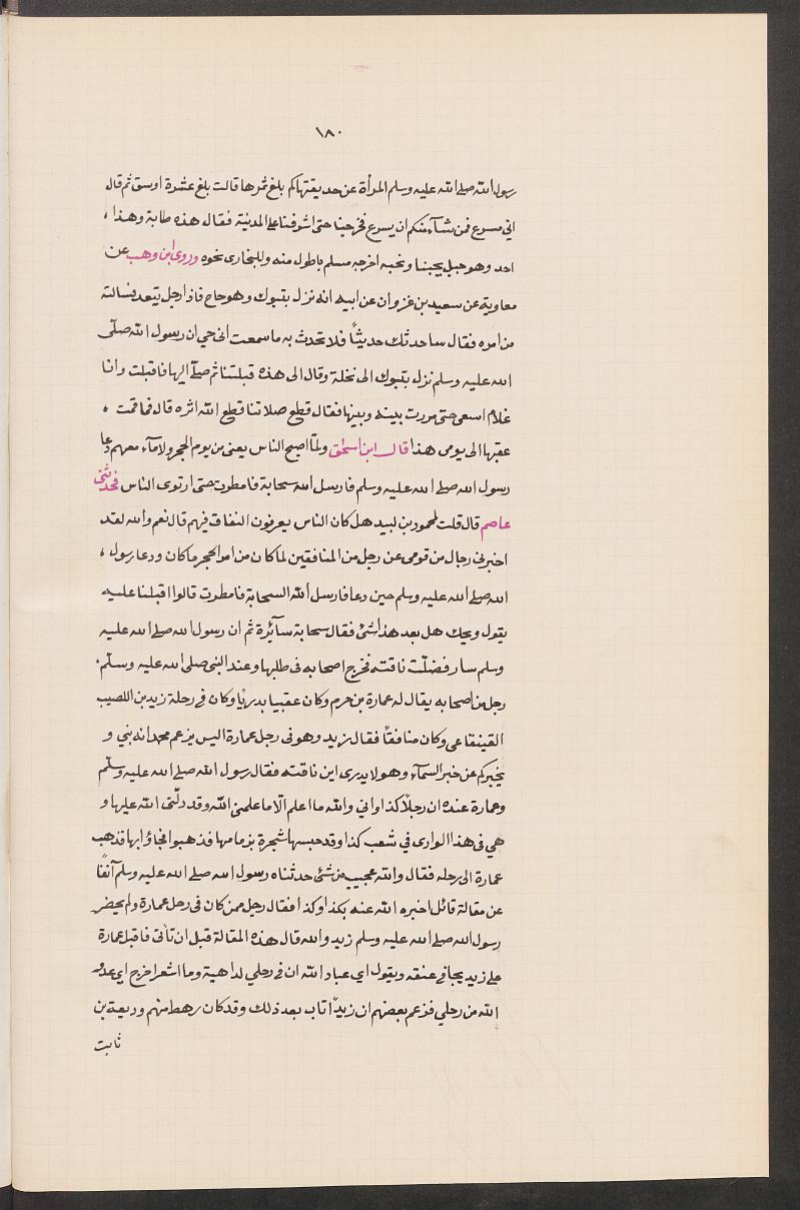 ١٨٠
رسول الله صلى الله عليه وسلم المرأة عن حديقتها كم بلغ ثمرها قالت بلغ عشرة اوسق ثم قال
اني مسرع فمن شآء منكم ان يسرع فخرجنا حتى اشرفنا على المدينة فقال هذه طابة وهذا ،
احد وهو جبل يحبنا ونحبه اخرجه مسلم باطول منه وللبخارى نحوه وروى ابن وهب عن
معاوية عن سعيد بن غزوان عن ابيه انه نزل بتبوك وهو حاج فاذا رجل يتعد فسالته
من امره فقال ساحدثك حديثاً فلا تحدث به ما سمعت انى حي ان رسول الله صلّى
الله عليه وسلم نزل بتبوك الى نخلة وقال الى هذه قبلتنا ثم صلّى اليها فاقبلت وانا
غلام اسعى حتى مررت بينه وبينها فقال قطع صلاتنا قطع الله اثره قال فما قمت ،
عقبها الى يومى هذا قال ابن اسحق ولمّا اصبح الناس يعنى من يوم الحجر ولا مآء معهم دعا
رسول الله صلى الله عليه وسلم فارسل الله سحابة فامطرت حتى ارتوى الناس فحدثنى
عاصم قال قلت لمحمود بن لبيد هل كان الناس يعرفون النفاق فيهم قال نعم والله لقد
اخبرنى رجال من قومى عن رجل من المنافقين لما كان من امر الحجر ما كان ودعا رسول ،
الله صلى الله عليه وسلم حين دعا فارسل الله السحابة فامطرت قالوا اقبلنا عليه
نقول ويحك هل بعد هذا شئ فقال سحابة سآئرة ثم ان رسول الله صلى الله عليه
وسلم سار فضلّت ناقته فخرج اصحابه فى طلبها وعند النبى صلى الله عليه وسلّم
رجل من اصحابه يقال له عمارة بن حرم وكان عقبيا بدريّا وكان فى رحلة زيد بن اللصيب
القينقاعى وكان منافقاً فقال زيد وهو فى رحل عمارة اليس يزعم محمد انه نبي و
يخبركم عن خبر السمآء وهو لا يدرى اين ناقته فقال رسول الله صلى الله عليه وسلّم
وعمارة عنده ان رجلاً كذا واني والله ما اعلم الّا ما علمنى الله وقد دلّنى الله عليها و
هي فى هذا الوادى في شعب كذا وقد حبسها شجرة بزمامها فذهبوا فجاؤا بها فذهب
عمارة الى رحله فقال والله عجيب من شئ حدثناه رسول الله صلى الله عليه وسلم آنفًا
عن مقالة قائل اخبره الله عنه بكذا وكذا فقال رجل ممن كان فى رحل عمارة ولم يحضر
رسول الله صلى الله عليه وسلم زيد والله قال هذه المقالة قبل ان تأتى فاقبل عمارة
على زيد يجا في عنقه ويقول اي عباد الله ان فى رحلي لداهية وما اشعر اخرج اي عدو
الله من رحلي فزعم بعضهم ان زيداً تاب بعد ذلك وقد كان رهط منهم وديعة بن
ثابت